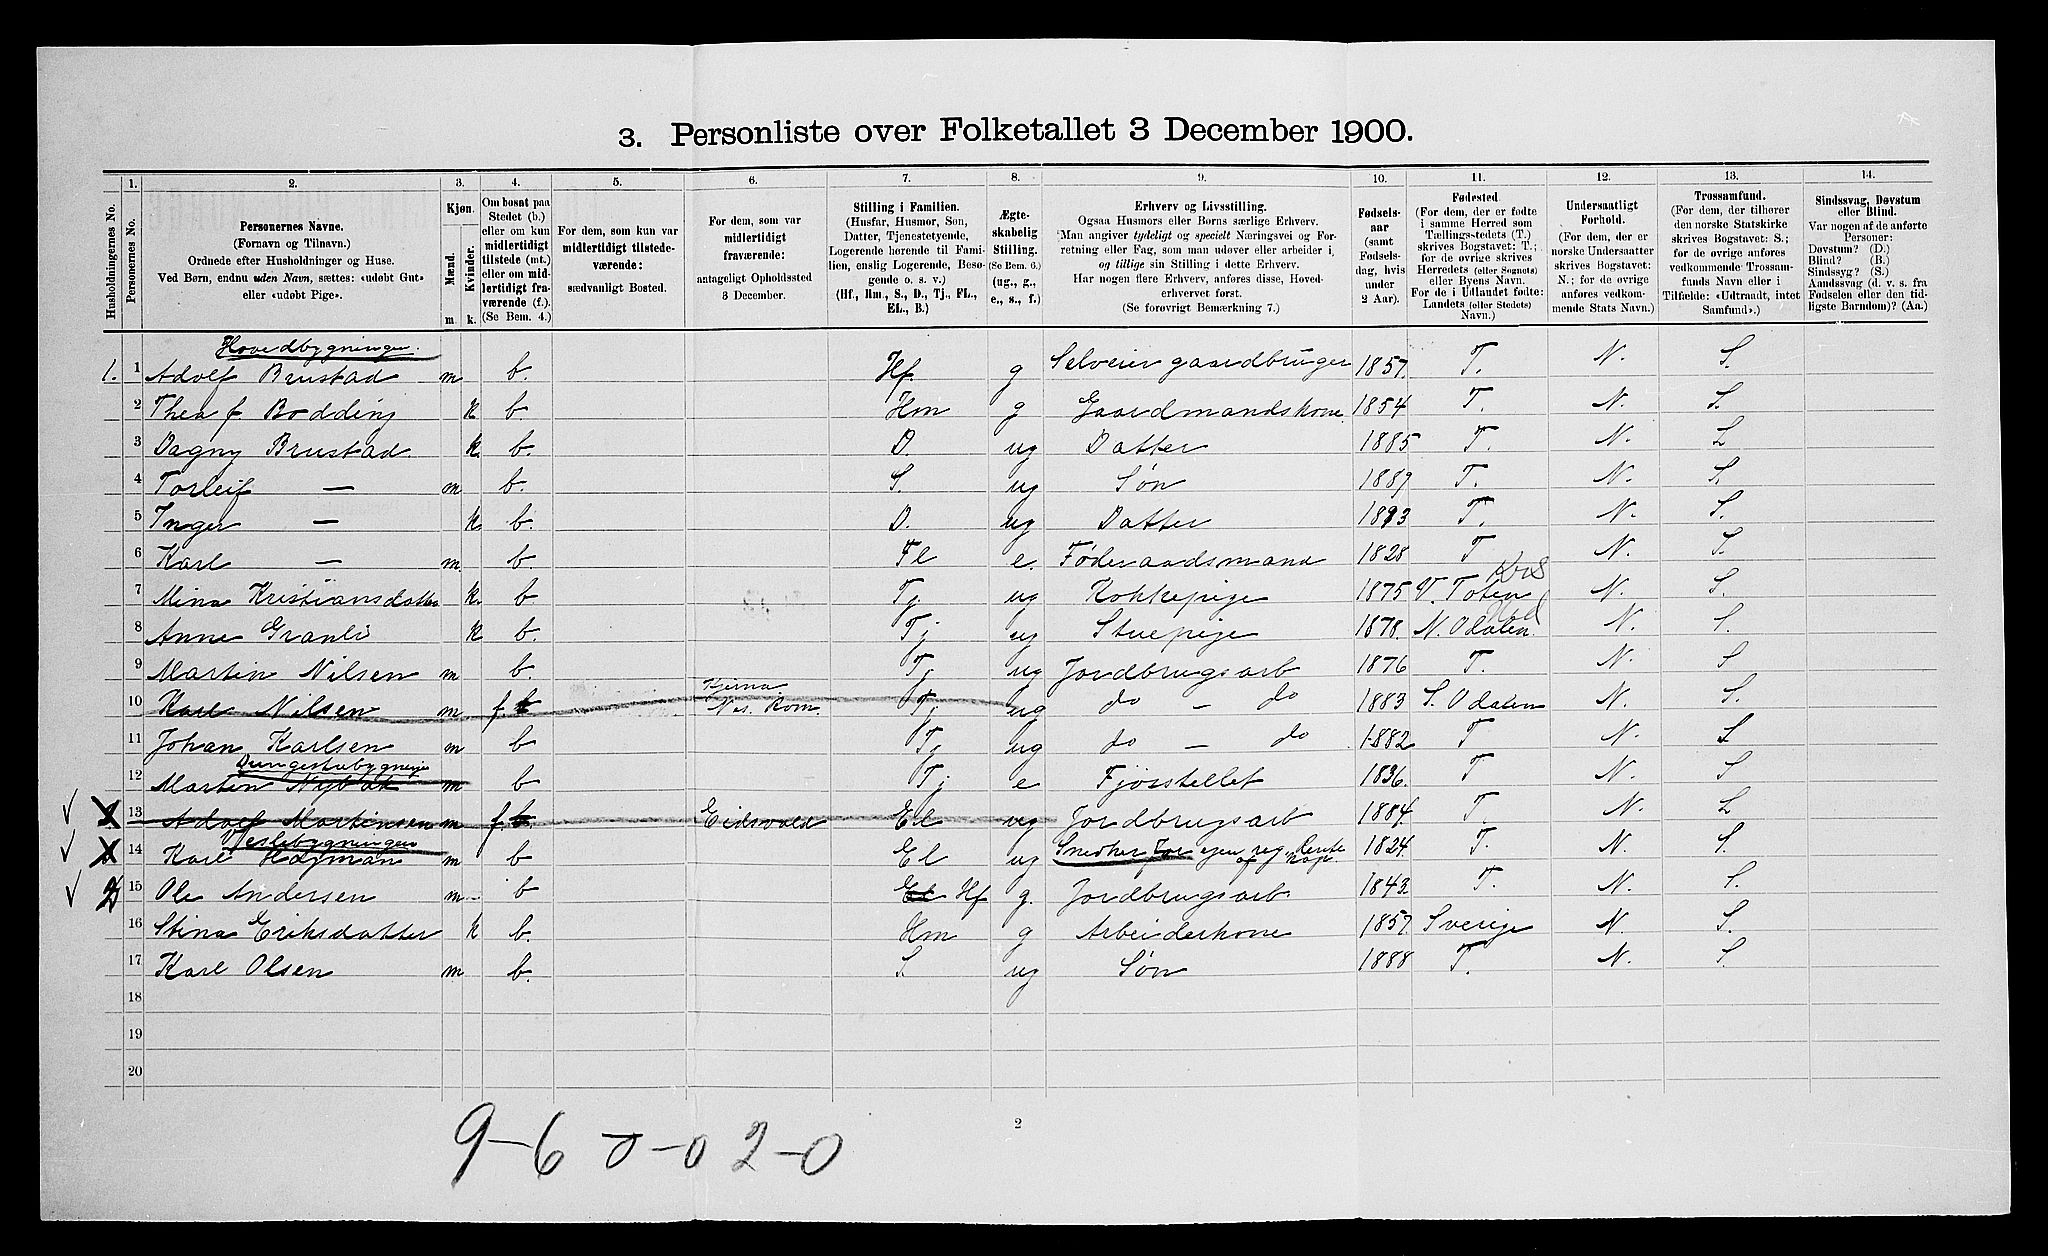 3. Personliste over Folketallet 3 December 1900.
1. 2. 3. 4. 5. 6. 7. 8. 9. 10. 11. 12. 13. 14.
Husholdningernes No.
Personernes No.
Personernes Navne.
(Fornavn og Tilnavn.)
Ordnede efter Husholdninger og Huse.
Ved Børn, endnu uden Navn, sættes: «udøbt Gut»
eller «udøbt Pige».
Kjøn.
Mænd. Kvinder.
m. k.
Om bosat paa
Stedet (b.)
eller om kun
midlertidigt
tilstede (mt.)
eller om mid-
lertidigt fra-
værende (f.).
(Se Bem. 4.)
For dem, som kun var
midlertidigt tilstede-
værende:
sædvanligt Bosted.
For dem, som var
midlertidigt
fraværende:
antageligt Opholdssted
3 December.
Stilling i Familien.
(Husfar, Husmor, Søn,
Datter, Tjenestetyende,
Logerende hørende til Fami-
lien, enslig Logerende, Besø-
gende o. s. v.)
(Hf., Hm., S., D., Tj., FL.,
EL., B.)
Ægte-
skabelig
Stilling.
(Se Bem. 6.)
(ug., g.,
e., s., f.)
Erhverv og Livsstilling.
Ogsaa Husmors eller Børns særlige Erhverv.
Man angiver tydeligt og specielt Næringsvei og For-
retning eller Fag, som man udøver eller arbeider i,
og tillige sin Stilling i dette Erhverv.
Har nogen flere Erhverv, anføres disse, Hoved-
erhvervet først.
(Se forøvrigt Bemærkning 7.)
Fødsels-
aar
(samt
Fødsels-
dag, hvis
under
2 Aar).
Fødested.
(For dem, der er fødte
i samme Herred som
Tællingsstedets (T.)
skrives Bogstavet: T.;
for de øvrige skrives
Herredets (eller Sognets)
eller Byens Navn.
For de i Udlandet fødte:
Landets (eller Stedets)
Navn.)
Undersaatligt
Forhold.
(For dem, der er
norske Undersaatter
skrives Bogstavet:
N.; for de øvrige
anføres vedkom-
mende Stats Navn.)
Trossamfund.
(For dem, der tilhører
den norske Statskirke
skrives Bogstavet: S.;
for de øvrige anføres
vedkommende Trossam-
funds Navn eller i
Tilfælde: «Udtraadt, intet
Samfund».)
Sindssvag, Døvstum
eller Blind.
Var nogen af de anførte
Personer:
Døvstum? (D.)
Blind? (B.)
Sindssyg? (S.)
Aandssvag (d. v. s. fra
Fødselen eller den tid-
ligste Barndom)? (Aa.)
Hovedbygningen.
1. 1 Adolf Brustad m b. Hf. g Selveier gaardbruger 1857. T. N. S.
2 Thea f Bodding k b Hm g Gaardmandskone 1854 T. N. S.
3 Dagny Brustad k. b. D. ug Datter 1885 T. N. S
4 Torleif — m b. S. ug Søn 1889 T. N. S.
5 Inger — k. b. D. ug Datter 1893 T. N. S.
6 Karl — m. b. Fl e. Føderaadsmand 1828 T N. S.
7 Mina Kristiansdatter k. b. Tj ug Kokkepige 1875 V. Toten N. S.
8 Anne Granli k b. Tj ug Stuepige 1878. N. Odalen N. S.
9 Martin Nilsen m b. Tj ug Jordbrugsarb 1876 T. N. S
10 Karl Nilsen m f. b Kjerna Nes. Rom. Tj ug do — do 1883 S. Odalen N. S.
11 Johan Karlsen m b Tj ug do — do 1882 T N. S
Drengestubygningen
12 Martin Nybak m b Tj e Fjøsstellet 1836. T N. S
13 Adolf Martinsen m f. b. Eidsvold El ug Jordbrugsarb 1884. T. N. S
Veslebygningen
14 Karl Hajman m b El ug Snedker for egen reg. Rente af Kap. 1824. T. N. S.
2 15 Ole Andersen m b El Hf g. Jordbrugsarb. 1843. T. N. S.
16 Stina Eriksdatter k b. Hm g Arbeiderkone 1857 Sverige N. S.
17 Karl Olsen m b. S. ug Søn 1888 T. N. S.
18
19
20
2
9-6 0-0 2-0